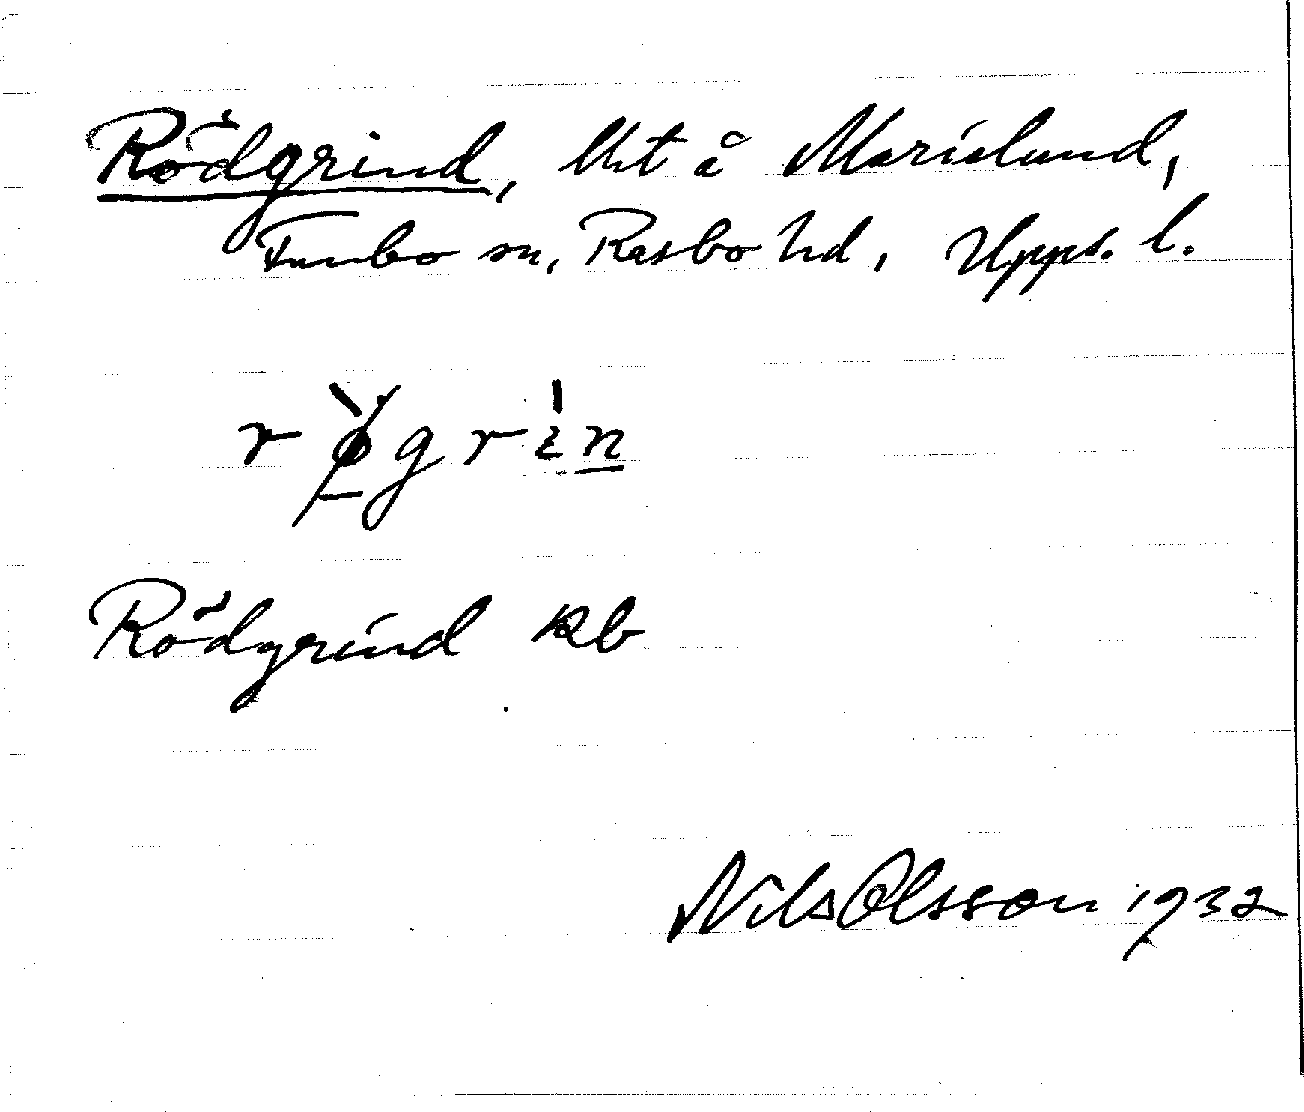 Rödgrind, lht å Marielund,
Funbo sn, Rasbo hd, Upps. l.
Rödgrind kb
Nils Olsson 1932